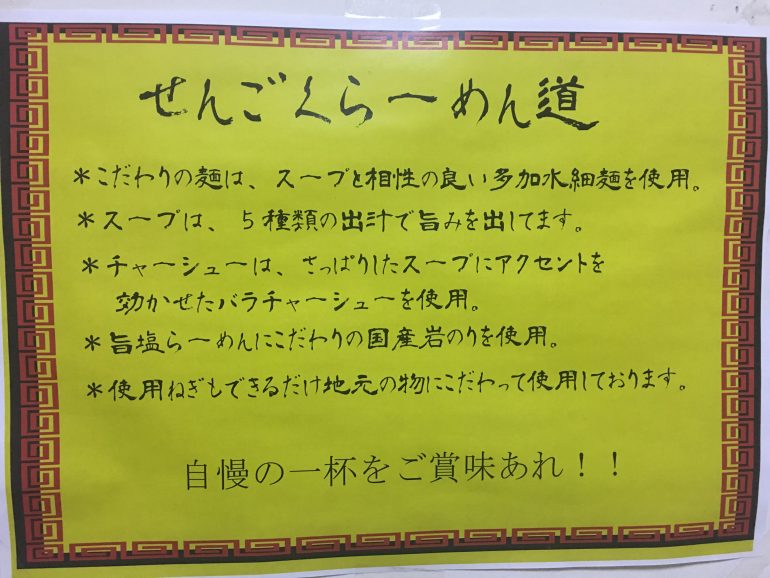 せんごくらーめん道
*こだわりの麺は、スープと相性の良い多加水細麺を使用。
*スープは、5種類の出汁で旨みを出してます。
*チャーシューは、さっぱりしたスープにアクセントを
効かせたバラチャーシューを使用。
*旨塩らーめんにこだわりの国産岩のりを使用。
*使用ねぎもできるだけ地元の物にこだわって使用しております。
自慢の一杯をご賞味あれ！！